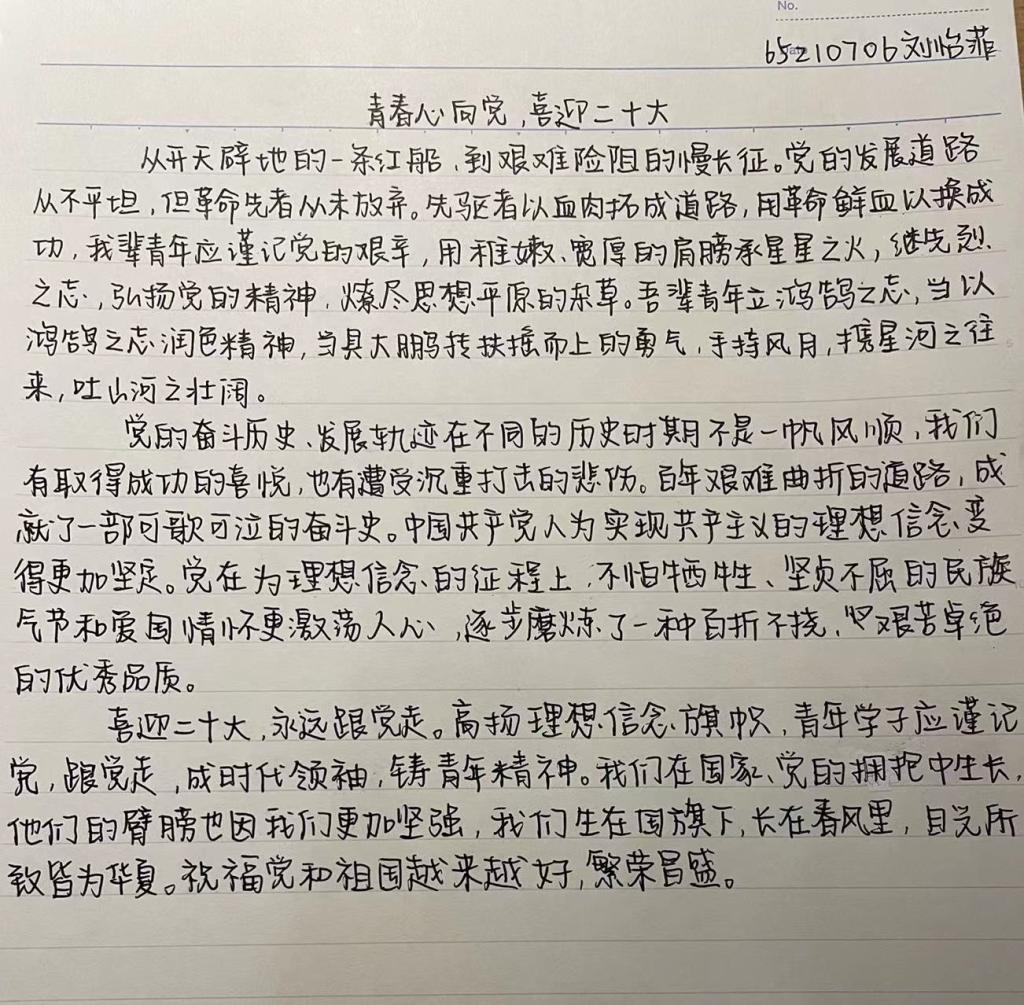 No.
65210706刘怡菲
青春心向党，喜迎二十大
从开天辟地的一条红船，到艰难险阻的慢长征。党的发展道路
从不平坦，但革命先者从未放弃。先驱者以血肉拓成道路，用革命鲜血以换成
功，我辈青年应谨记党的艰辛，用稚嫩、宽厚的肩膀承星星之火，继先烈
之志，弘扬党的精神，燎尽思想平原的杂草。吾辈青年立鸿鹄之志，当以
鸿鹄之志润色精神，当具大鹏转扶摇而上的勇气，手持风月，携星河之往
来，吐山河之壮阔。
党的奋斗历史、发展轨迹在不同的历史时期不是一帆风顺，我们
有取得成功的喜悦，也有遭受沉重打击的悲伤。百年艰难曲折的道路，成
就了一部可歌可泣的奋斗史。中国共产党人为实现共产主义的理想信念变
得更加坚定。党在为理想信念的征程上，不怕牺牲、坚贞不屈的民族
气节和爱国情怀更激荡人心，逐步磨炼了一种百折不挠、艰苦卓绝
的优秀品质。
喜迎二十大，永远跟党走。高扬理想信念旗帜，青年学子应谨记
党，跟党走，成时代领袖，铸青年精神。我们在国家、党的拥抱中生长，
他们的臂膀也因我们更加坚强，我们生在国旗下，长在春风里，目光所
致皆为华夏。祝福党和祖国越来越好，繁荣昌盛。